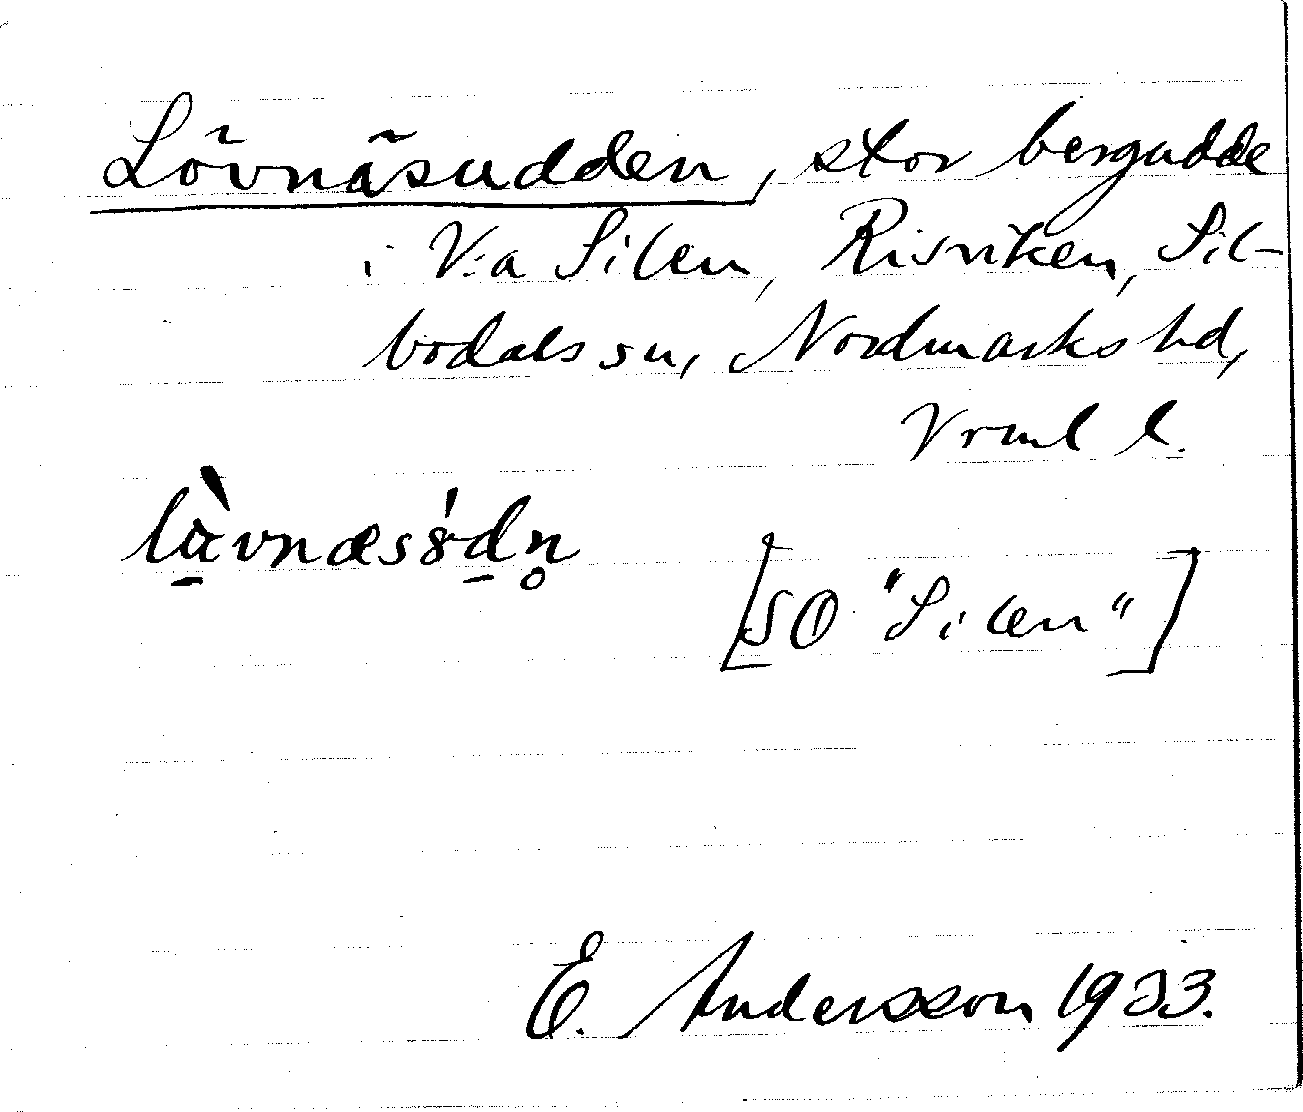 Lövnäsudden, stor bergudde
i V:a Silen, Risviken, Sil-
bodals sn, Nordmarks hd,
Vrml l.
[SO "Silen"]
E. Andersson 1933.